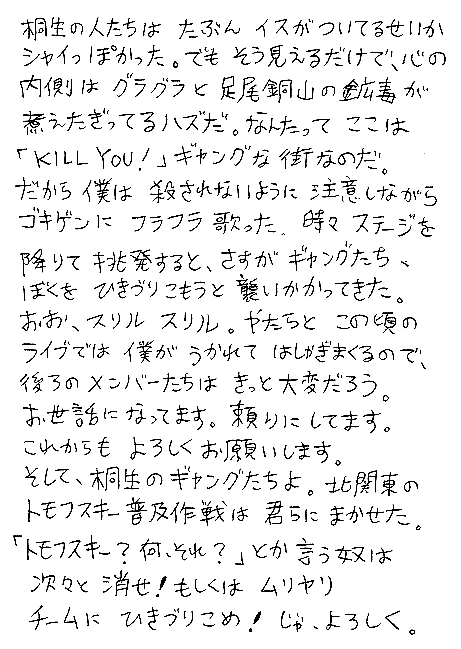 桐生の人たちは たぶん イスがついてるせいか
シャイっぽかった。でも そう見えるだけで、心の
内側は グラグラと 足尾銅山の鉱毒が
煮えたぎってるハズだ。なんたって ここは
「KILL YOU!」ギャングな 街なのだ。
だから 僕は 殺されないように 注意しながら
ゴキゲンに フラフラ 歌った。時々 ステージを
降りて 挑発すると、さすが ギャングたち、
ぼくを ひきづりこもうと 襲いかかってきた。
おお、スリル スリル。やたらと この頃の
ライブでは 僕が うかれて はしゃぎまくるので、
後ろのメンバーたちは きっと大変だろう。
お世話になってます。頼りにしてます。
これからも よろしくお願いします。
そして、桐生のギャングたちよ。北関東の
トモフスキー普及作戦は 君らに まかせた。
「トモフスキー?何、それ?」とか言う奴は
次々と 消せ!もしくは ムリヤリ
チームに ひきづりこめ! じゃ、よろしく。